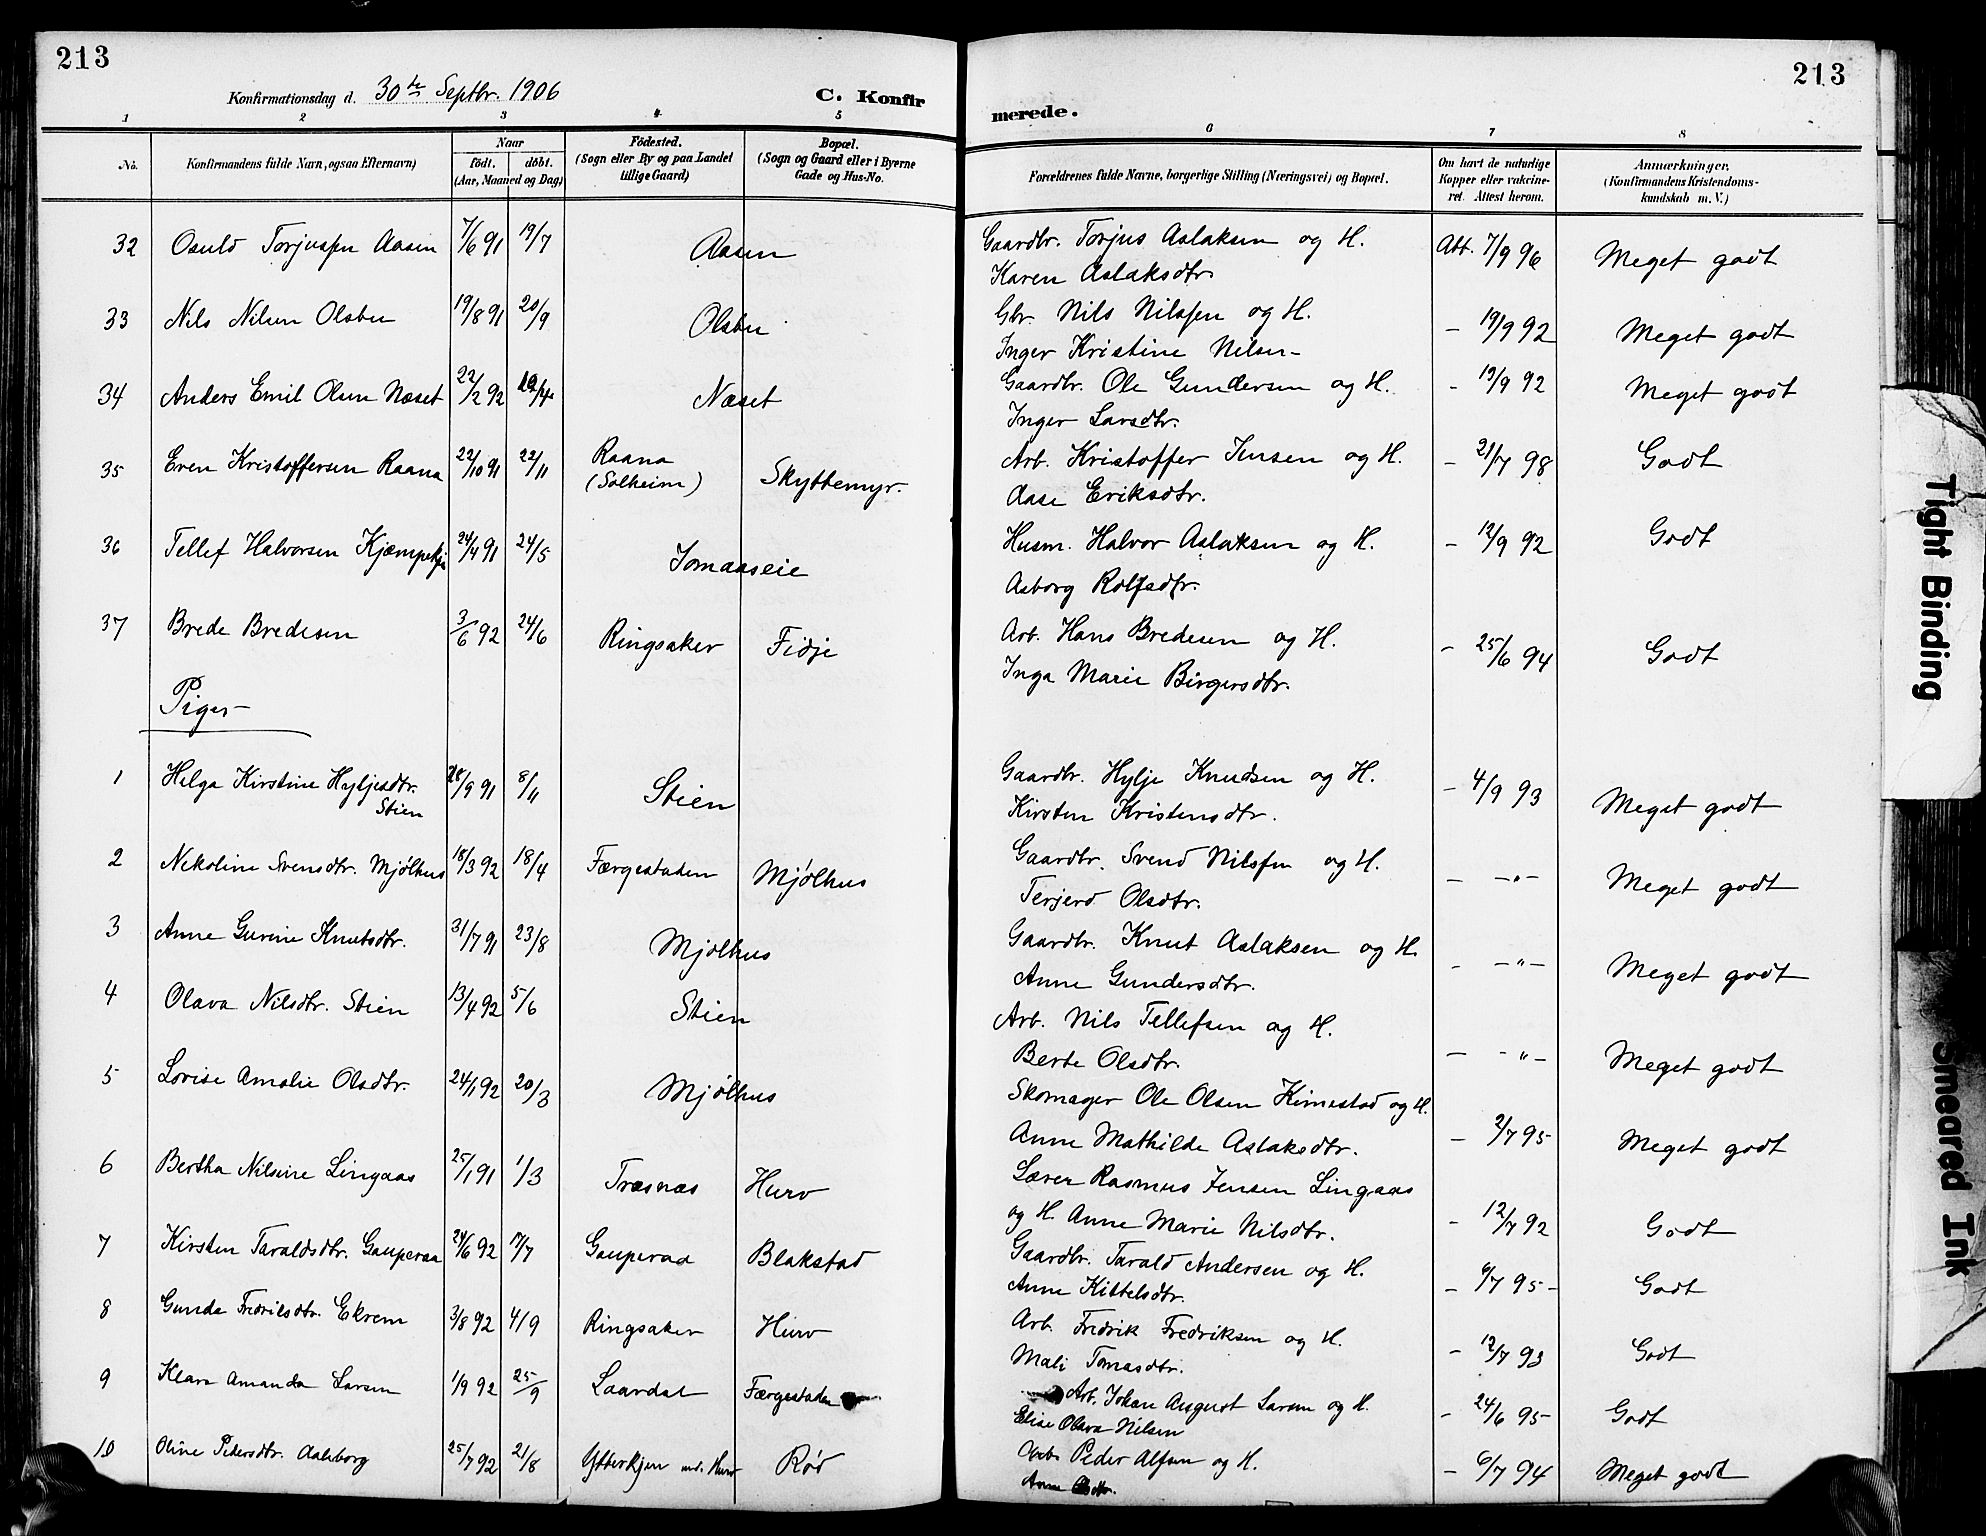 213
213
Konfirmationsdag d. 30te Septbr. 1906
C. Konfirmerede.
1 2 3 4 5 6 7 8
No.
Konfirmandens fulde Navn, ogsaa Efternavn)
Naar
födt. döbt.
(Aar, Maaned og Dag)
Födested.
(Sogn eller By og paa Landet
tillige Gaard)
Bopæl.
(Sogn og Gaard eller i Byerne
Gade og Hus-No.
Forældrenes fulde Navne, borgerlige Stilling (Næringsvei) og Bopæl.
Om havt de naturlige
Kopper eller vakcine-
ret. Attest herom.
Anmærkninger,
(Konfirmandens Kristendoms-
kundskab m. V.)
32 Osuld Torjussen Aasen 7/6 91 19/7 Aasen Gaardbr. Torjus Aslaksen og H. Att. 7/9 96 Meget godt
Karen Aslaksdtr.
33 Nils Nilsen Olsbu 19/8 91 20/9 Olsbu Gbr. Nils Nilssen og H. – 19/9 92 Meget godt
Inger Kristine Nilsen–
34 Anders Emil Olsen Næset 22/2 92 Næset Gaardbr. Ole Gundersen og H. – 19/9 92 Meget godt
Inger Larsdtr.
35 Even Kristoffersen Raana 22/10 91 22/11 Raana (Solheim) Skyttemyr. Arb. Kristoffer Jensen og H. – 21/7 98 Godt
Aase Eriksdtr.
36 Tellef Halvorsen 24/4 91 24/5 Jomaaseie Husm. Halvor Aslaksen og H. – 12/9 92 Godt
Asborg Rolfsdtr.
37 Brede Bredesen 3/6 92 24/6 Ringsaker Fidje Arb. Hans Bredesen og H. – 25/6 94 Godt
Inga Marie Birgersdtr.
Piger–
1 Helga Kirstine Hyljesdtr. 28/9 91 8/11 Stien Gaardbr. Hylje Knudsen og H. – 4/9 93 Meget godt
Stien Kirsten Kristensdtr.
2 Nekoline Svensdtr. Mjølhus 18/3 92 18/4 Færgestaden Mjølhus Gaardbr. Svend Nilssen og H. – –"– Meget godt
Terjerd Olsdtr.
3 Anne Gurine Knutsdtr. 31/7 91 23/8 Mjølhus Gaardbr. Knut Aslaksen og H. – –"– Meget godt
Anne Gundersdtr.
4 Olava Nilsdtr. Stien 13/4 92 5/6 Stien Arb. Nils Tellefsen og H. – –"– Meget godt
Berte Olsdtr.
5 Lovise Amalie Olsdtr. 24/1 92 20/3 Mjølhus Skomager Ole Olsen Kimestad og H. – 2/7 95 Meget godt
Anne Mathilde Aslaksdtr.
6 Bertha Nilsine Lingaas 25/1 91 1/3 Træsnæs Hurv Lærer Rasmus Jensen Lingaas – 12/7 92 Godt
og H. Anne Marie Nilsdtr.
7 Kirsten Taraldsdtr. Gauperaa 24/6 92 17/7 Gauperaa Blakstad Gaardbr. Tarald Andersen og H. – 6/7 95– Godt
Anne Kittelsdtr.
8 Gunda Fredriksdtr. Ekrem 3/8 92 4/9 Ringsaker Hurv Arb. Fredrik Fredriksen og H. – 12/7 93 Godt
Mali Tomasdtr.
9 Klara Amanda Larsen 1/9 92 25/9 Laardal Færgestaden Arb. Johan August Larsen og H. – 24/6 95– Godt
Elise Olava Nilsen
10 Oline Pedersdtr. Aalsborg 25/7 92 21/8 Hurv Rød Arb. Peder Alfsen og H. – 6/7 94 Meget godt
Anne Olsdtr.
Tight Binding
Smeared Ink